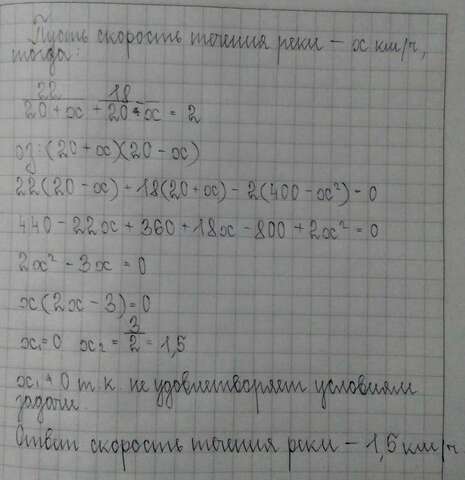 Пусть скорость течения реки – x км/ч,
тогда:
22/(20+x) + 18/(20-x) = 2
оз: (20+x)(20-x)
22(20-x) + 18(20+x) - 2(400-x²) = 0
440 - 22x + 360 + 18x - 800 + 2x² = 0
2x² - 3x = 0
x(2x - 3) = 0
x₁=0 x₂ = 3/2 = 1,5
x₁ ≠ 0 т к не удовлетворяет условиям
задачи
Ответ скорость течения реки – 1,5 км/ч